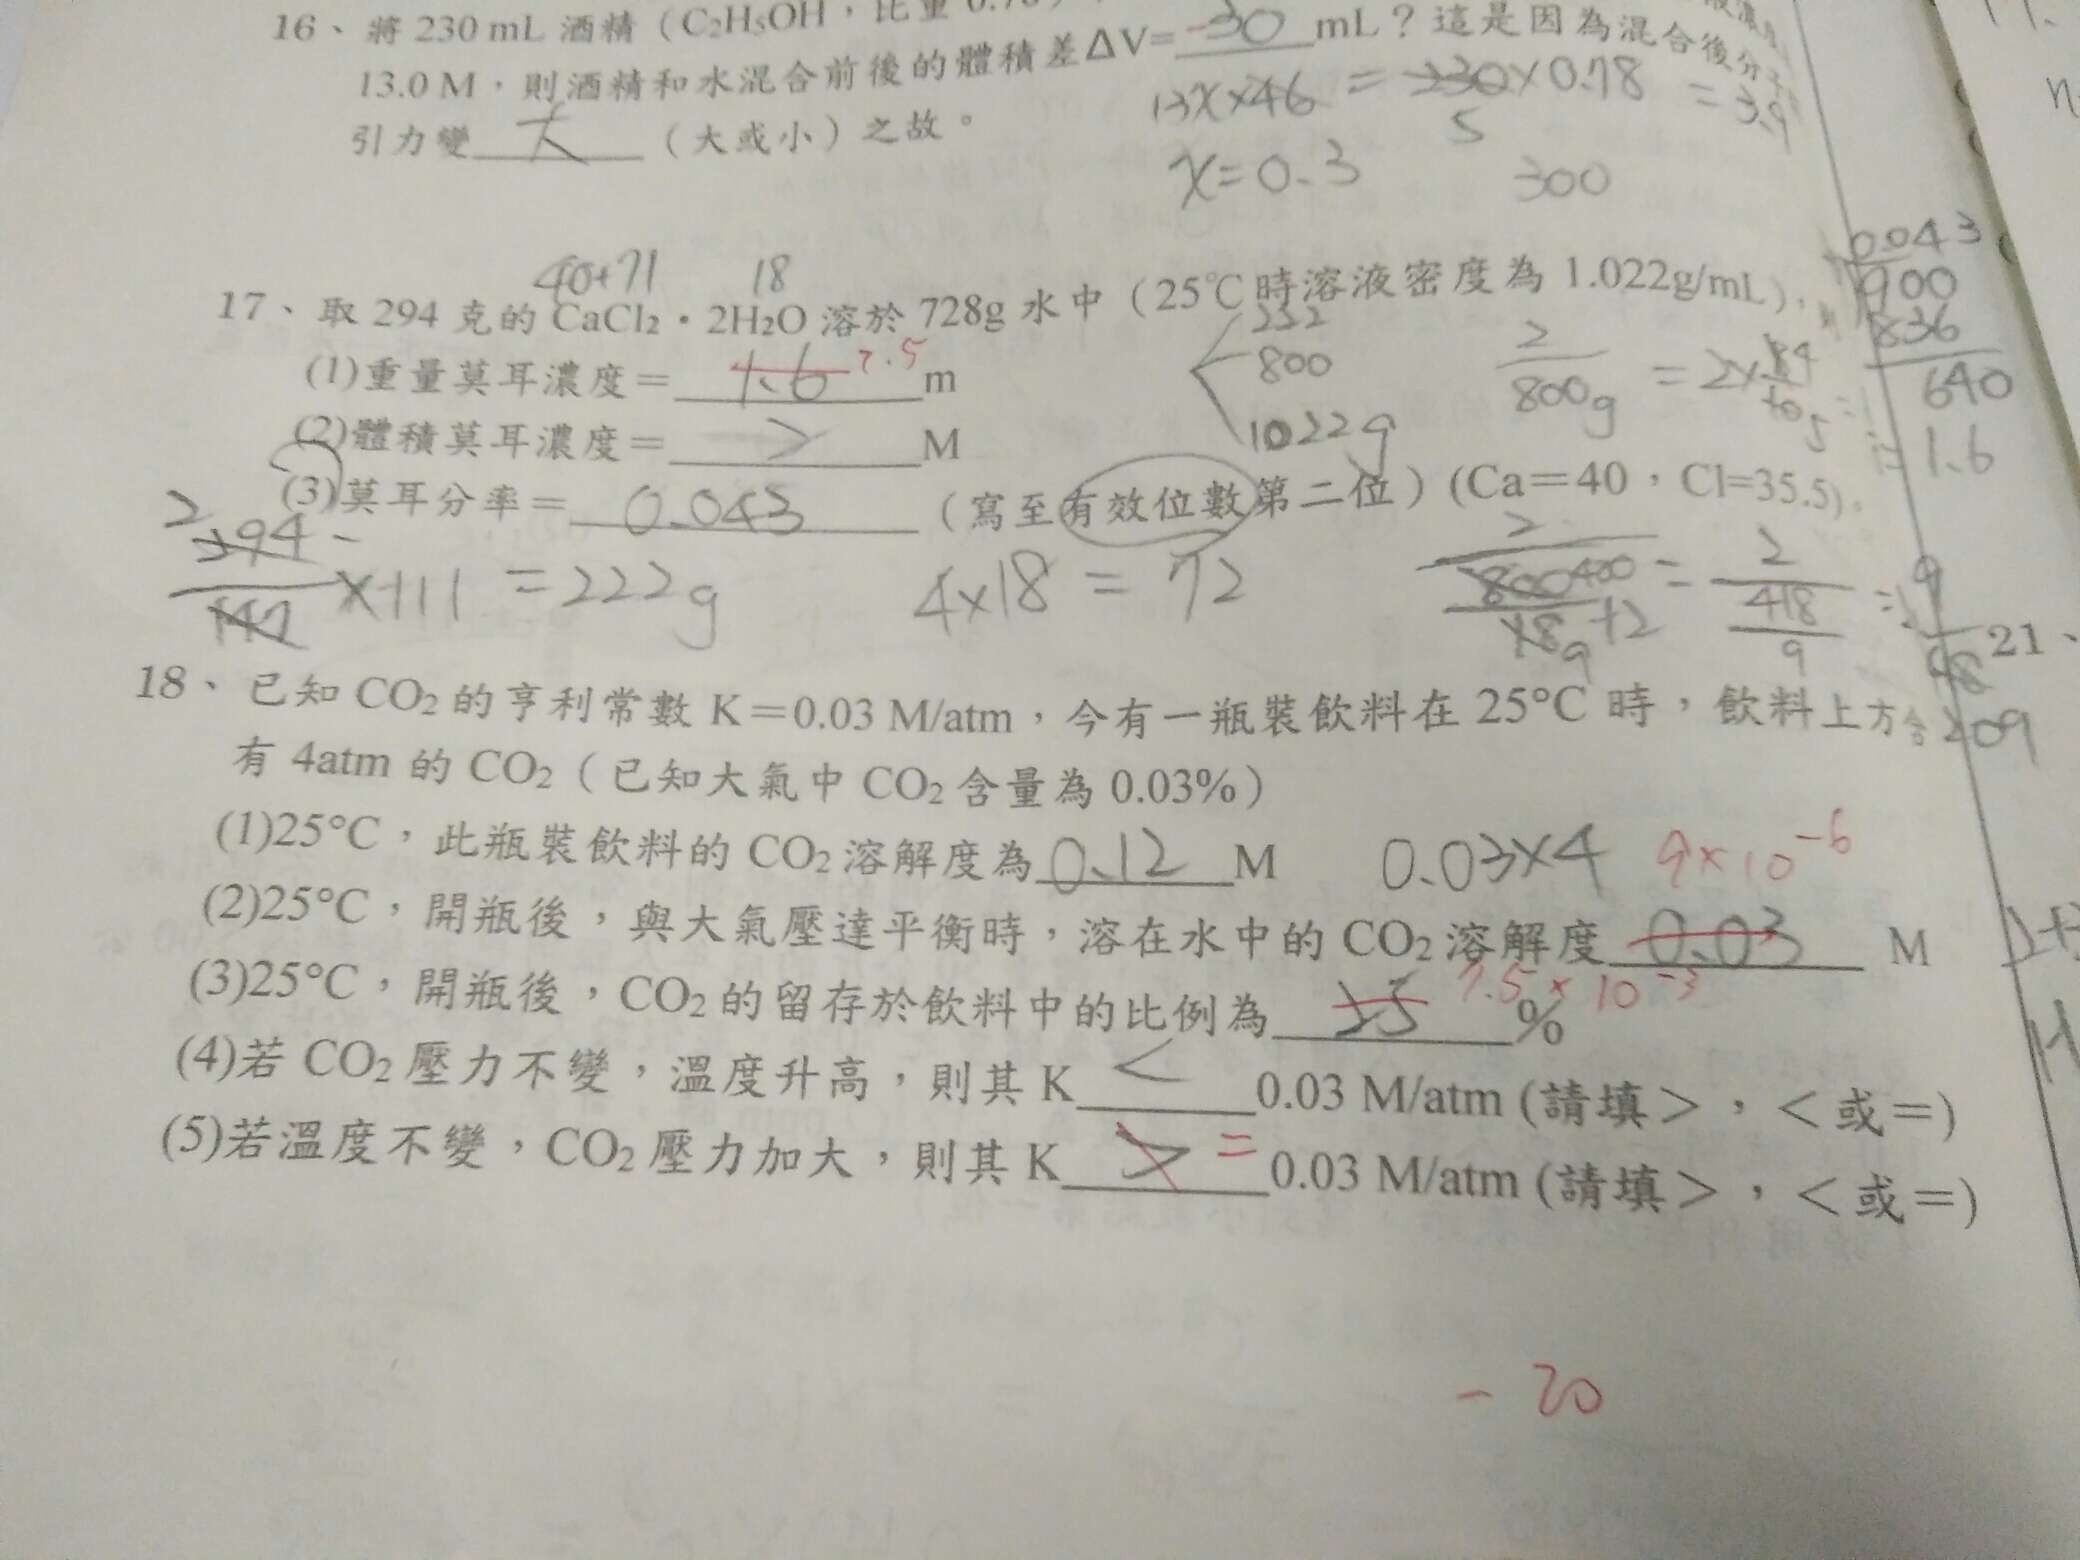 16、將 230 mL 酒精（C2H5OH，比重
13.0 M，則酒精和水混合前後的體積差ΔV= -30 mL？這是因為混合後分子
引力變 大 （大或小）之故。
13x×46 = 230×0.78 = 3.9
5
x=0.3 300
40+71 18
17、取 294 克的 CaCl2・2H2O 溶於 728g 水中（25℃時溶液密度為 1.022g/mL）,
(1)重量莫耳濃度＝ 1.6 2.5 m
(2)體積莫耳濃度＝ 2 M
(3)莫耳分率＝ 0.043 （寫至有效位數第二位）(Ca＝40，Cl=35.5).
222
800
1022g
2
800g
0.043
900
836
640
1.6
294
147
×111 = 222g
4×18 = 72
2
418
9
209
21、
18、已知 CO2 的亨利常數 K＝0.03 M/atm，今有一瓶裝飲料在 25°C 時，飲料上方含
有 4atm 的 CO2（已知大氣中 CO2 含量為 0.03%）
(1)25°C，此瓶裝飲料的 CO2 溶解度為 0.12 M 0.03×4 9×10-6
(2)25°C，開瓶後，與大氣壓達平衡時，溶在水中的 CO2 溶解度 0.03 M
(3)25°C，開瓶後，CO2 的留存於飲料中的比例為 25 7.5×10-3 %
(4)若 CO2 壓力不變，溫度升高，則其 K < 0.03 M/atm (請填＞，＜或＝)
(5)若溫度不變，CO2 壓力加大，則其 K > = 0.03 M/atm (請填＞，＜或＝)
- 20